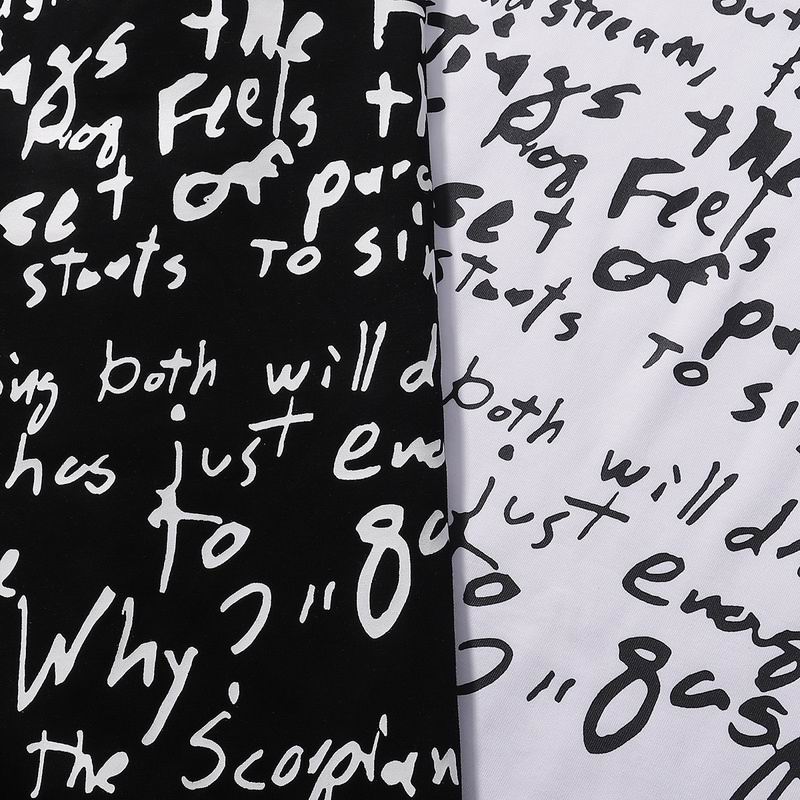 the
ngs
frog Feels th
set of para
starts to si
ing both will d
has just eno
to ga
Why? "
the Scorpian
out
dstream,
ngs the
frog Feels
set of pa
starts to si
both will dr
just enoug
to
? " gasp